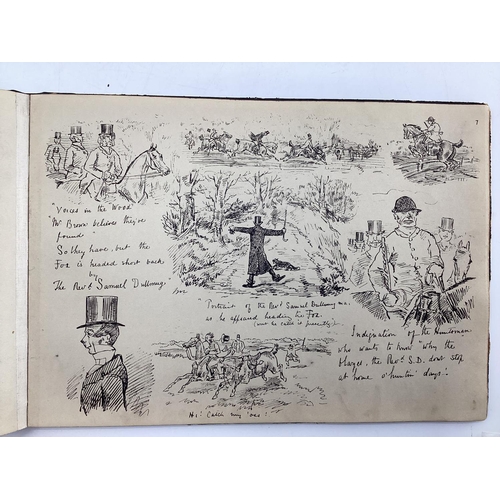 7
"Voices in the Wood"
"Mr Brown believes they've
found"
So they have, but the
Fox is headed short back
by
The Revd. Samuel Dullmug.
"Portrait of the Revd Samuel Dullmug M.A.
as he appeared heading the Fox.
Indignation of the Huntsman
who wants to know "why the
blazes, the Revd. S.D. dont stop
at home o' huntin' days".
Hi! Catch my 'oss!